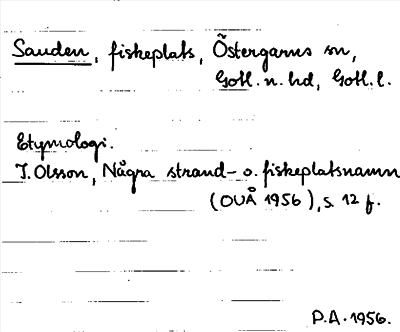 Sanden, fiskeplats, Östergarns sn,
Gotl. n. hd, Gotl. l.
Etymologi.
I. Olsson, Några strand- o. fiskeplatsnamn
(OUÅ 1956), s. 12 f.
P.A. 1956.